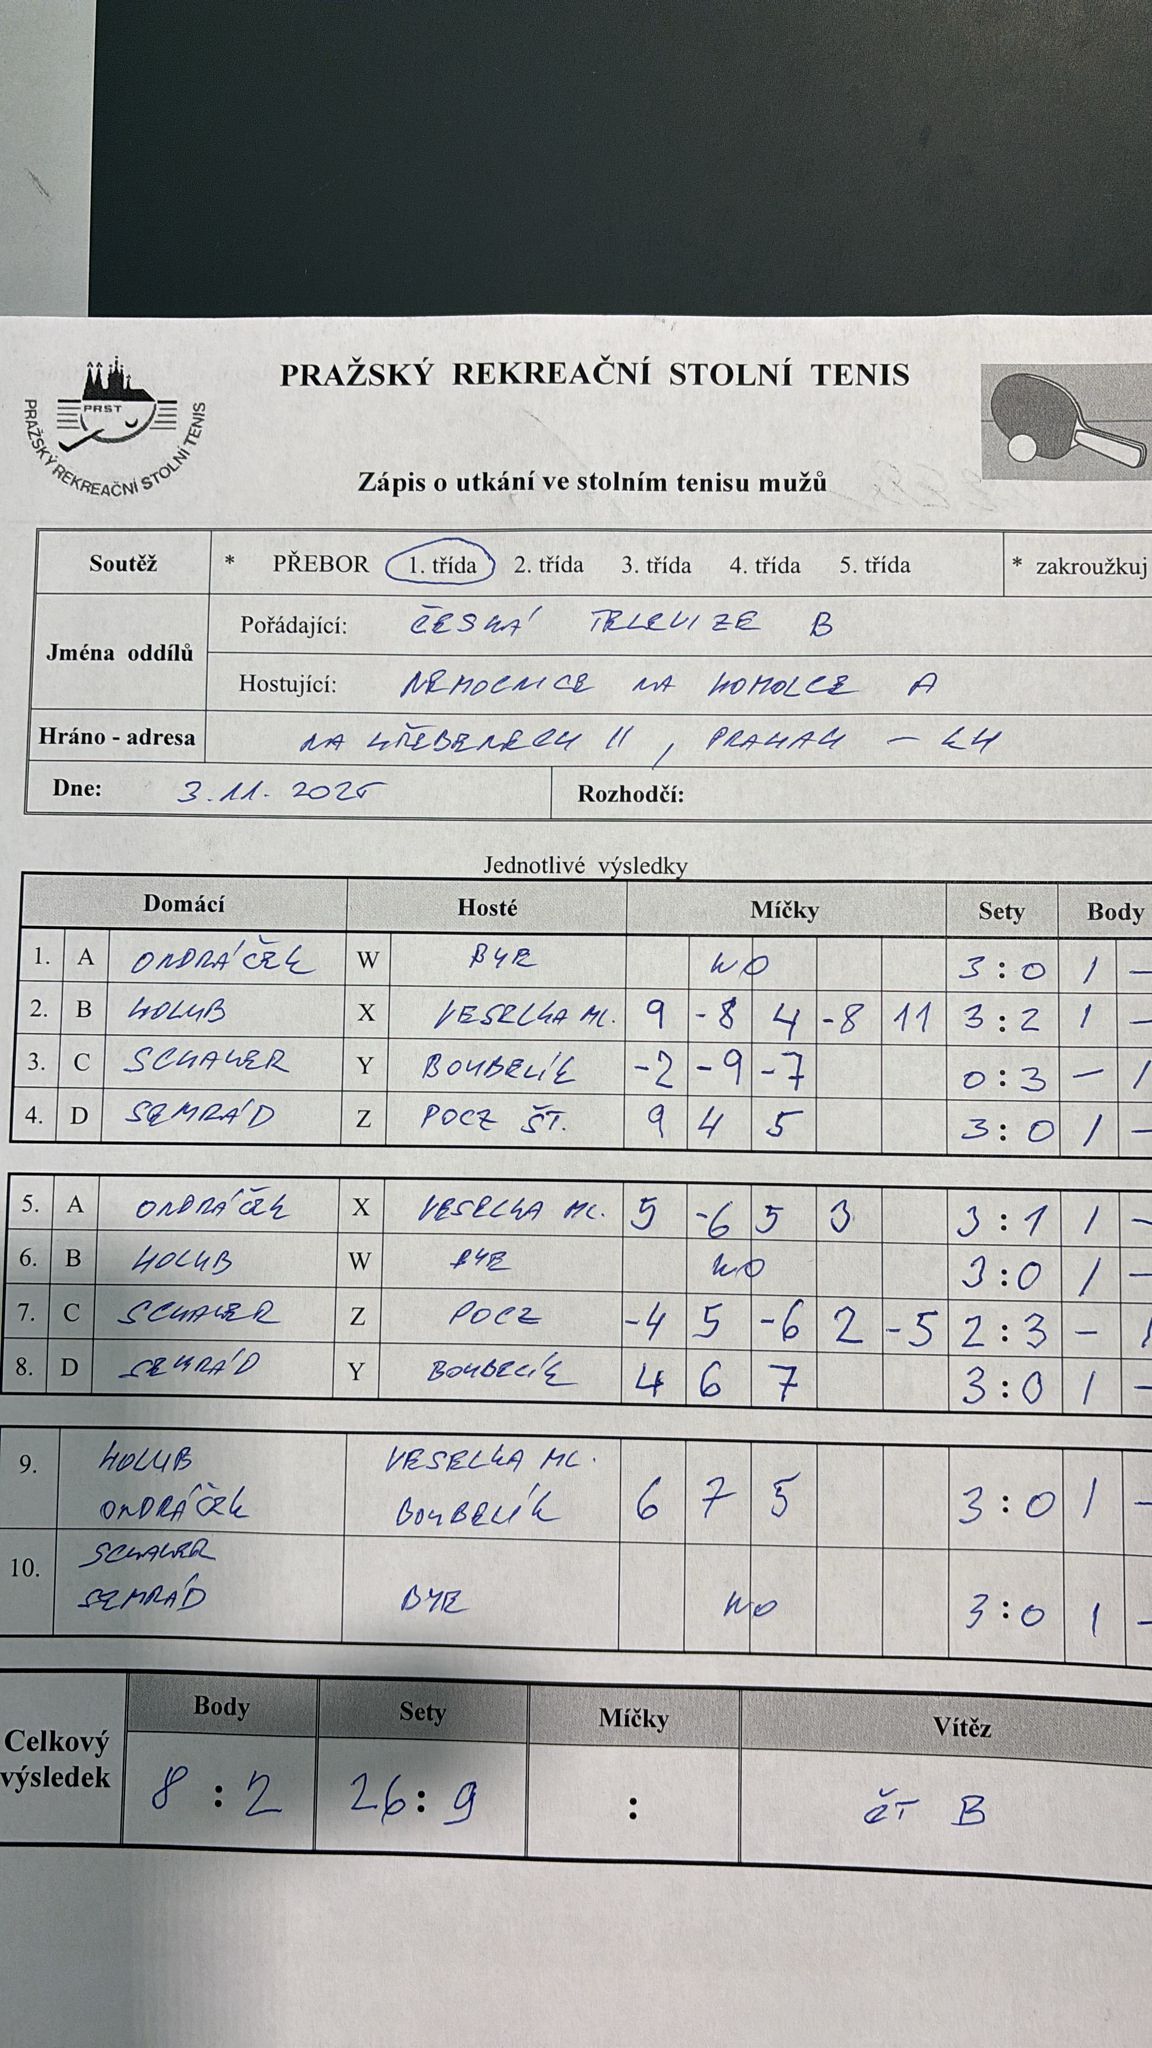 PRAŽSKÝ REKREAČNÍ STOLNÍ TENIS
PRST
PRAŽSKÝ REKREAČNÍ STOLNÍ TENIS
Zápis o utkání ve stolním tenisu mužů
Soutěž * PŘEBOR 1. třída 2. třída 3. třída 4. třída 5. třída * zakroužkuj
Jména oddílů
Pořádající: ČESKÁ TELEVIZE B
Hostující: NEMOCNICE NA HOMOLCE A
Hráno - adresa NA HŘEBENECH II, PRAHA 4 - KH
Dne: 3.11. 2025 Rozhodčí:
Jednotlivé výsledky
Domácí Hosté Míčky Sety Body
1. A ONDRÁČEK W BYE WO 3:0 1 -
2. B HOLUB X VESELKA ML. 9 -8 4 -8 11 3:2 1 -
3. C SCHAUER Y BOUBELÍK -2 -9 -7 0:3 - 1
4. D SEMRÁD Z POCZ ŠT. 9 4 5 3:0 1 -
5. A ONDRÁČEK X VESELKA ML. 5 -6 5 3 3:1 1 -
6. B HOLUB W BYE WO 3:0 1 -
7. C SCHAUER Z POCZ -4 5 -6 2 -5 2:3 - 1
8. D SEMRÁD Y BOUBELÍK 4 6 7 3:0 1 -
9. HOLUB VESELKA ML.
ONDRÁČEK BOUBELÍK 6 7 5 3:0 1 -
10. SCHAUER
SEMRÁD BYE WO 3:0 1 -
Celkový výsledek
Body Sety Míčky Vítěz
8:2 26:9 : ČT B